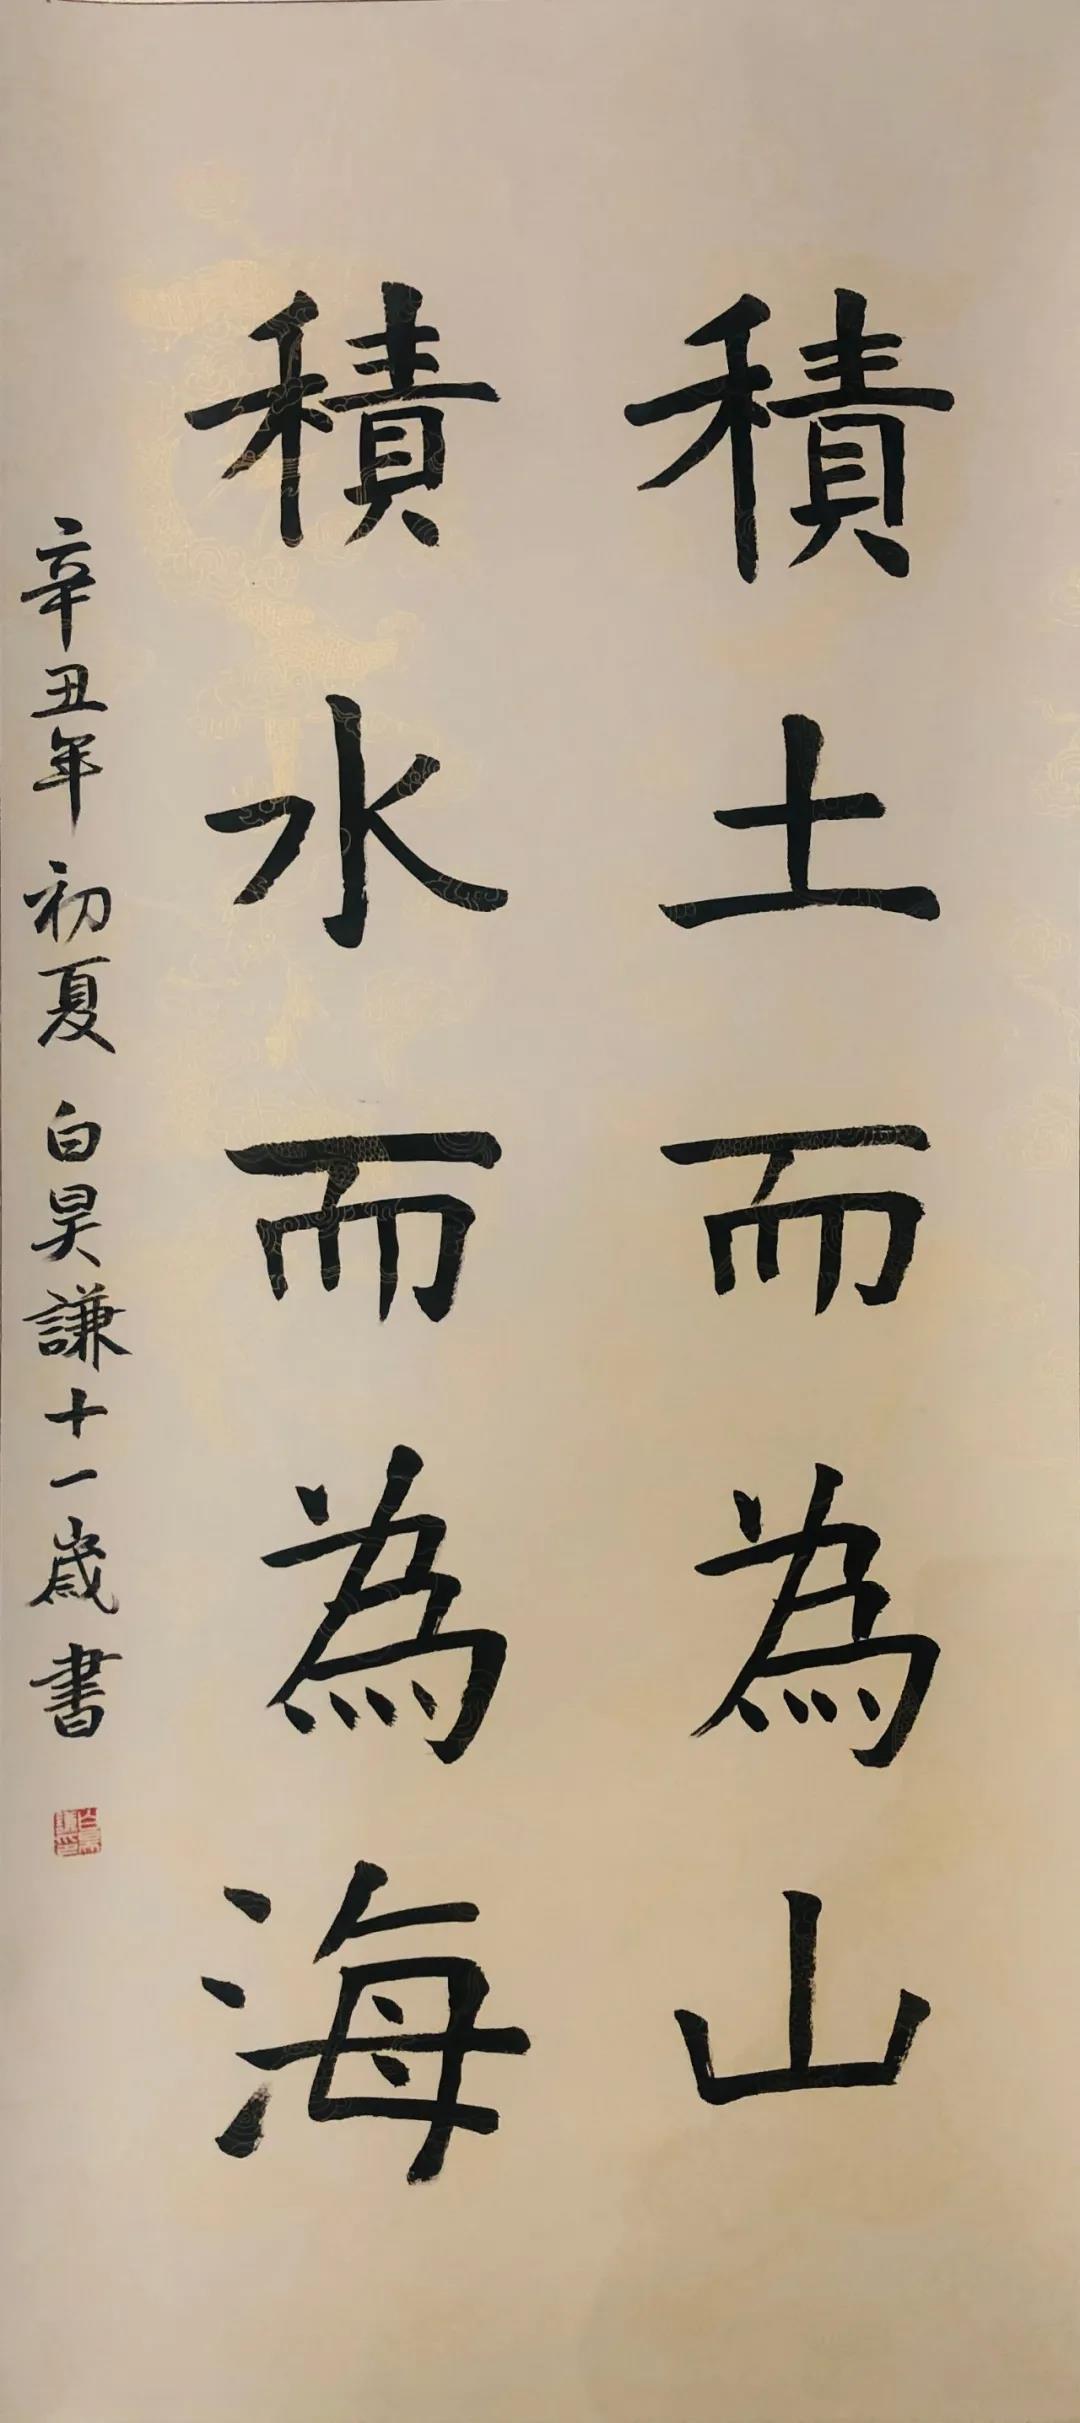 積土而為山
積水而為海
辛丑年初夏白昊謙十一歲書